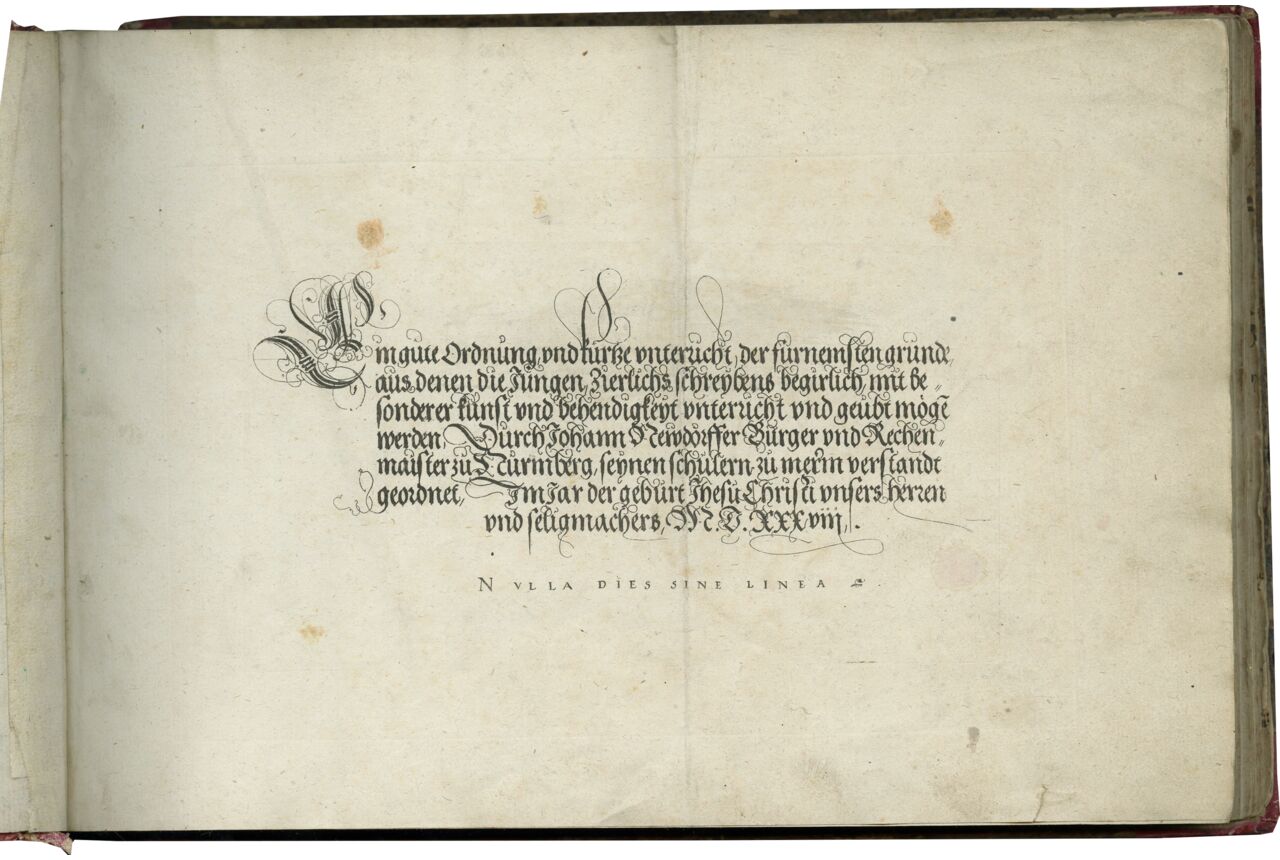 Ein gute Ordnung, vnd kurtze vnterricht, der furnemsten grunde,
aus denen die Jungen, Zierlichs schreybens begirlich, mit be⸗
sonderer kunst vnd behendigkeyt vnterricht vnd geubt mögē
werden, Durch Johann Newdörffer Burger vnd Rechen⸗
maister zu Nurmberg, seynen schulern zu merm verstandt
geordnet, Im Jar der geburt Jhesu Christi vnsers herren
vnd seligmachers, M.D.XXXviij.
NVLLA DIES SINE LINEA